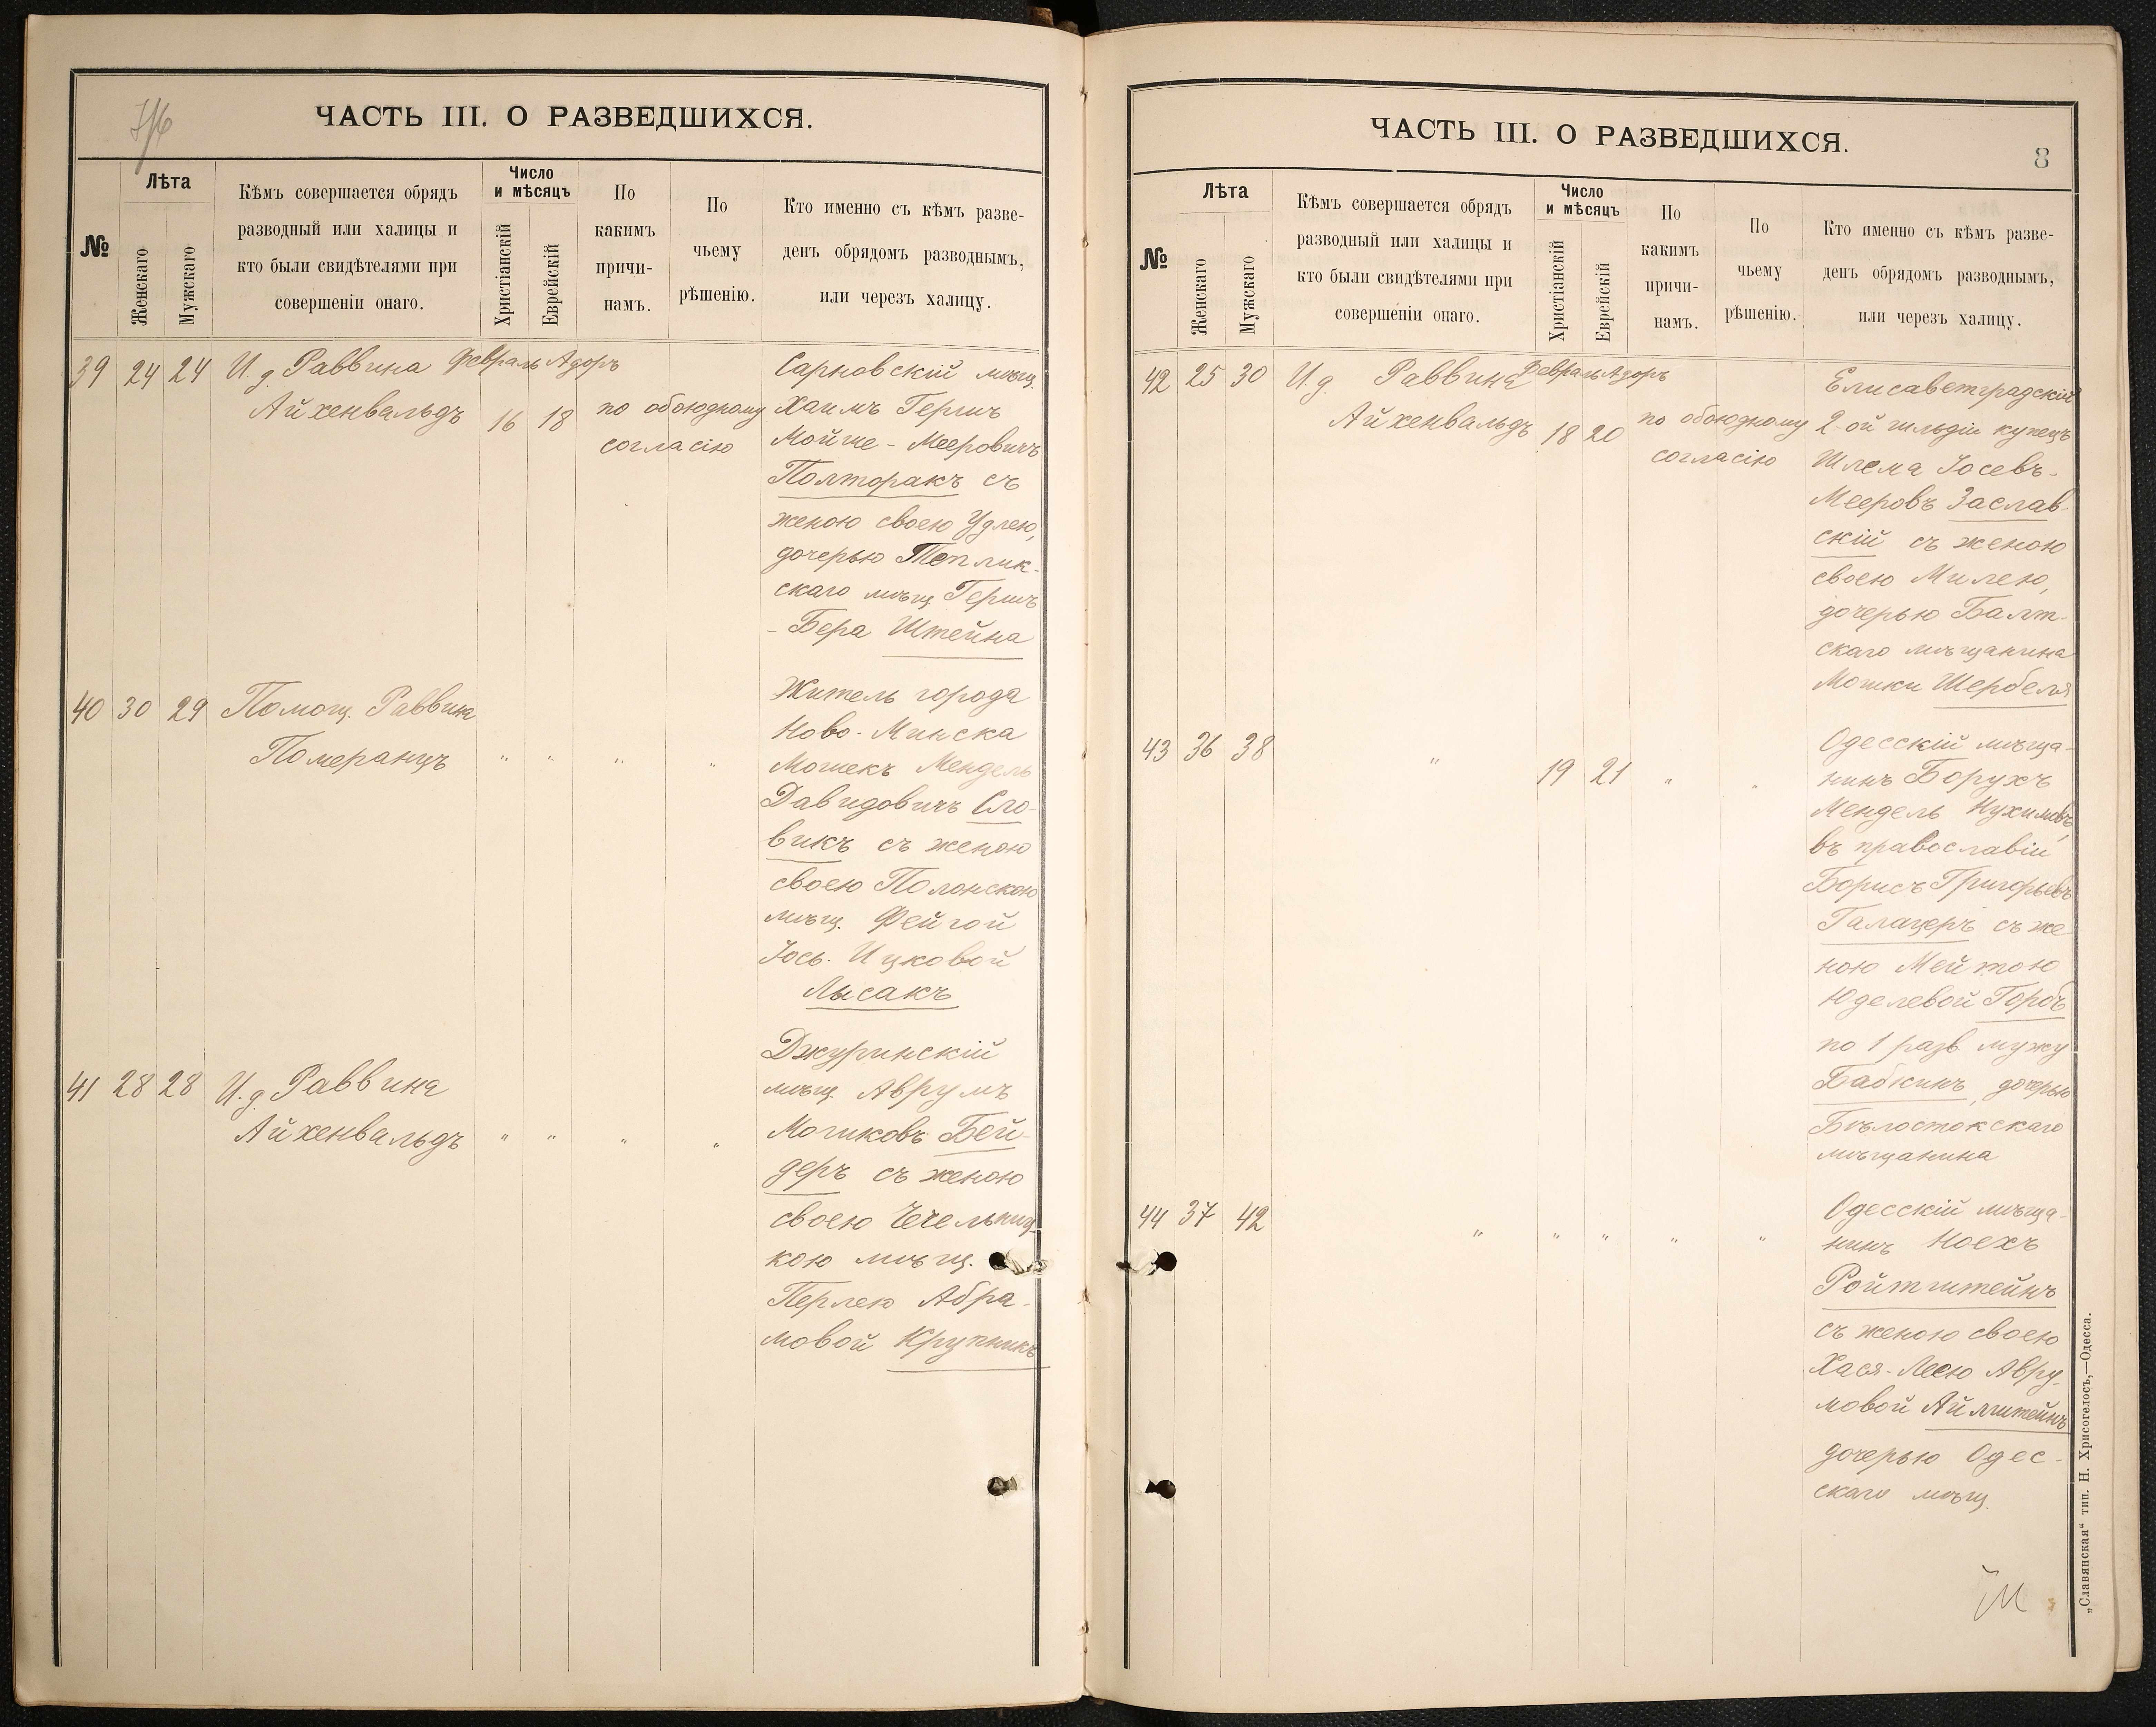 ЧАСТЬ III. О РАЗВЕДШИХСЯ.
№
Лѣта
Женскаго
Мужскаго
Кѣмъ совершается обрядъ
разводный или халицы и
кто были свидѣтелями при
совершеніи онаго.
Число
и мѣсяцъ
Христіанскій
Еврейскій
По
какимъ
причи-
намъ.
По
чьему
рѣшенію.
Кто именно съ кѣмъ разве-
денъ обрядомъ разводнымъ,
или черезъ халицу.
39 24 24 И. д. Раввина Февраль Адоръ
Айхенвальдъ 16 18 по обоюдному
согласію
Сарновскій мѣщ.
Хаимъ Гершъ
Мойше-Мееровичъ
Полторакъ съ
женою своею Удлею,
дочерью Теплик-
скаго мѣщ. Гершъ
-Бера Штейна
40 30 29 Помощ. Раввина
Померанцъ " " " "
Житель города
Ново-Минска
Мошекъ Мендель
Давидовичъ Сло-
викъ съ женою
своею Полонскою
мѣщ. Фейгой
Іось-Ицковой
Лысакъ
41 28 28 И. д. Раввина
Айхенвальдъ " " " "
Джуринскій
мѣщ. Аврумъ
Мошковъ Бей-
деръ съ женою
своею Чечельниц-
кою мѣщ.
Перлею Абра-
мовой Крупникъ
ЧАСТЬ III. О РАЗВЕДШИХСЯ.
8
№
Лѣта
Женскаго
Мужскаго
Кѣмъ совершается обрядъ
разводный или халицы и
кто были свидѣтелями при
совершеніи онаго.
Число
и мѣсяцъ
Христіанскій
Еврейскій
По
какимъ
причи-
намъ.
По
чьему
рѣшенію.
Кто именно съ кѣмъ разве-
денъ обрядомъ разводнымъ,
или черезъ халицу.
42 25 30 И. д. Раввина Февраль Адоръ
Айхенвальдъ 18 20 по обоюдному
согласію
Елисаветградскій
2-ой гильдіи купецъ
Шлема Іосевъ-
Мееровъ Заслав-
скій съ женою
своею Милею,
дочерью Балт-
скаго мѣщанина
Мошки Шербеля
43 36 38 " 19 21 " "
Одесскій мѣща-
нинъ Борухъ
Мендель Нухимовъ,
въ православіи
Борисъ Григорьевъ
Галацеръ съ же
ною Мейтою
Юделевой Горбъ
по 1 разв мужу
Бабкинъ, дочерью
Бѣлостокскаго
мѣщанина
44 37 42 " " " " "
Одесскій мѣща-
нинъ Ноехъ
Ройтштейнъ
съ женою своею
Хася-Леею Авру-
мовой Айлштейнъ
дочерью Одес-
скаго мѣщ.
„Славянская“ тип. Н. Хрисогелосъ,—Одесса.